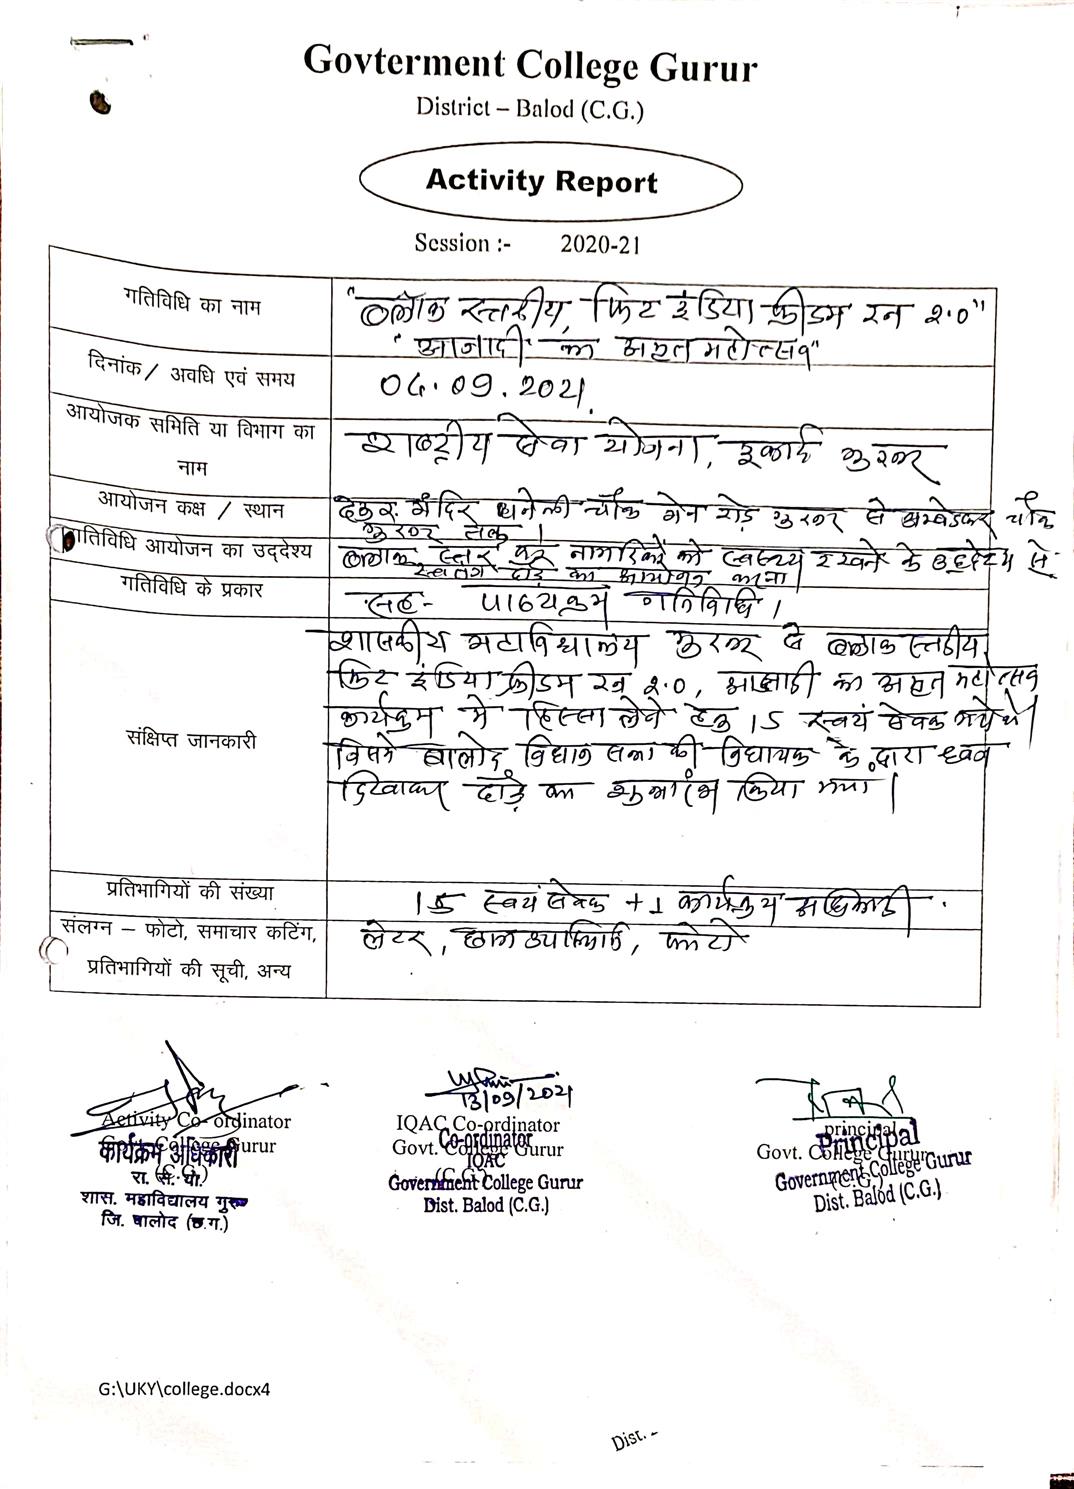 Govterment College Gurur
District – Balod (C.G.)
Activity Report
Session :- 2020-21
गतिविधि का नाम
"ब्लॉक स्तरीय, फिट इंडिया फ्रीडम रन २.0"
"आजादी का अमृत महोत्सव"
दिनांक / अवधि एवं समय
04.09.2021.
आयोजक समिति या विभाग का
नाम
राष्ट्रीय सेवा योजना, इकाई गुरूर
आयोजन कक्ष / स्थान
मंदिर धनेली चौक मेन रोड़ गुरूर से अम्बेडकर चौक
गुरूर तक।
गतिविधि आयोजन का उद्देश्य
ब्लाक स्तर पर नागरिकों को स्वस्थ्य रखने के उद्देश्य से
दौड़ का आयोजन करना।
गतिविधि के प्रकार
सह- पाठ्यक्रम गतिविधि।
संक्षिप्त जानकारी
शासकीय महाविद्यालय गुरूर से ब्लाक स्तरीय,
फिट इंडिया फ्रीडम रन २.0, आजादी का अमृत महोत्सव
कार्यक्रम मे हिस्सा लेने हेतु 15 स्वयं सेवक गये थे।
जिसमे बालोद विधान सभा की विधायक के द्वारा ध्वज
दिखाकर दौड़ का शुभारंभ किया गया।
प्रतिभागियों की संख्या
15 स्वयं सेवक +1 कार्यक्रम अधिकारी.
संलग्न – फोटो, समाचार कटिंग,
प्रतिभागियों की सूची, अन्य
लेटर, छात्र उपस्थिति, फोटो
13/09/2021
Activity Co- ordinator
Govt. College Gurur
(C.G.)
कार्यक्रम अधिकारी
रा. से. यो.
शास. महाविद्यालय गुरूर
जि. बालोद (छ.ग.)
IQAC Co-ordinator
Govt. College Gurur
(C.G.)
Co-ordinator
IQAC
Government College Gurur
Dist. Balod (C.G.)
principal
Govt. College Gurur
(C.G.)
Principal
Government College Gurur
Dist. Balod (C.G.)
G:\UKY\college.docx4
Dist. -